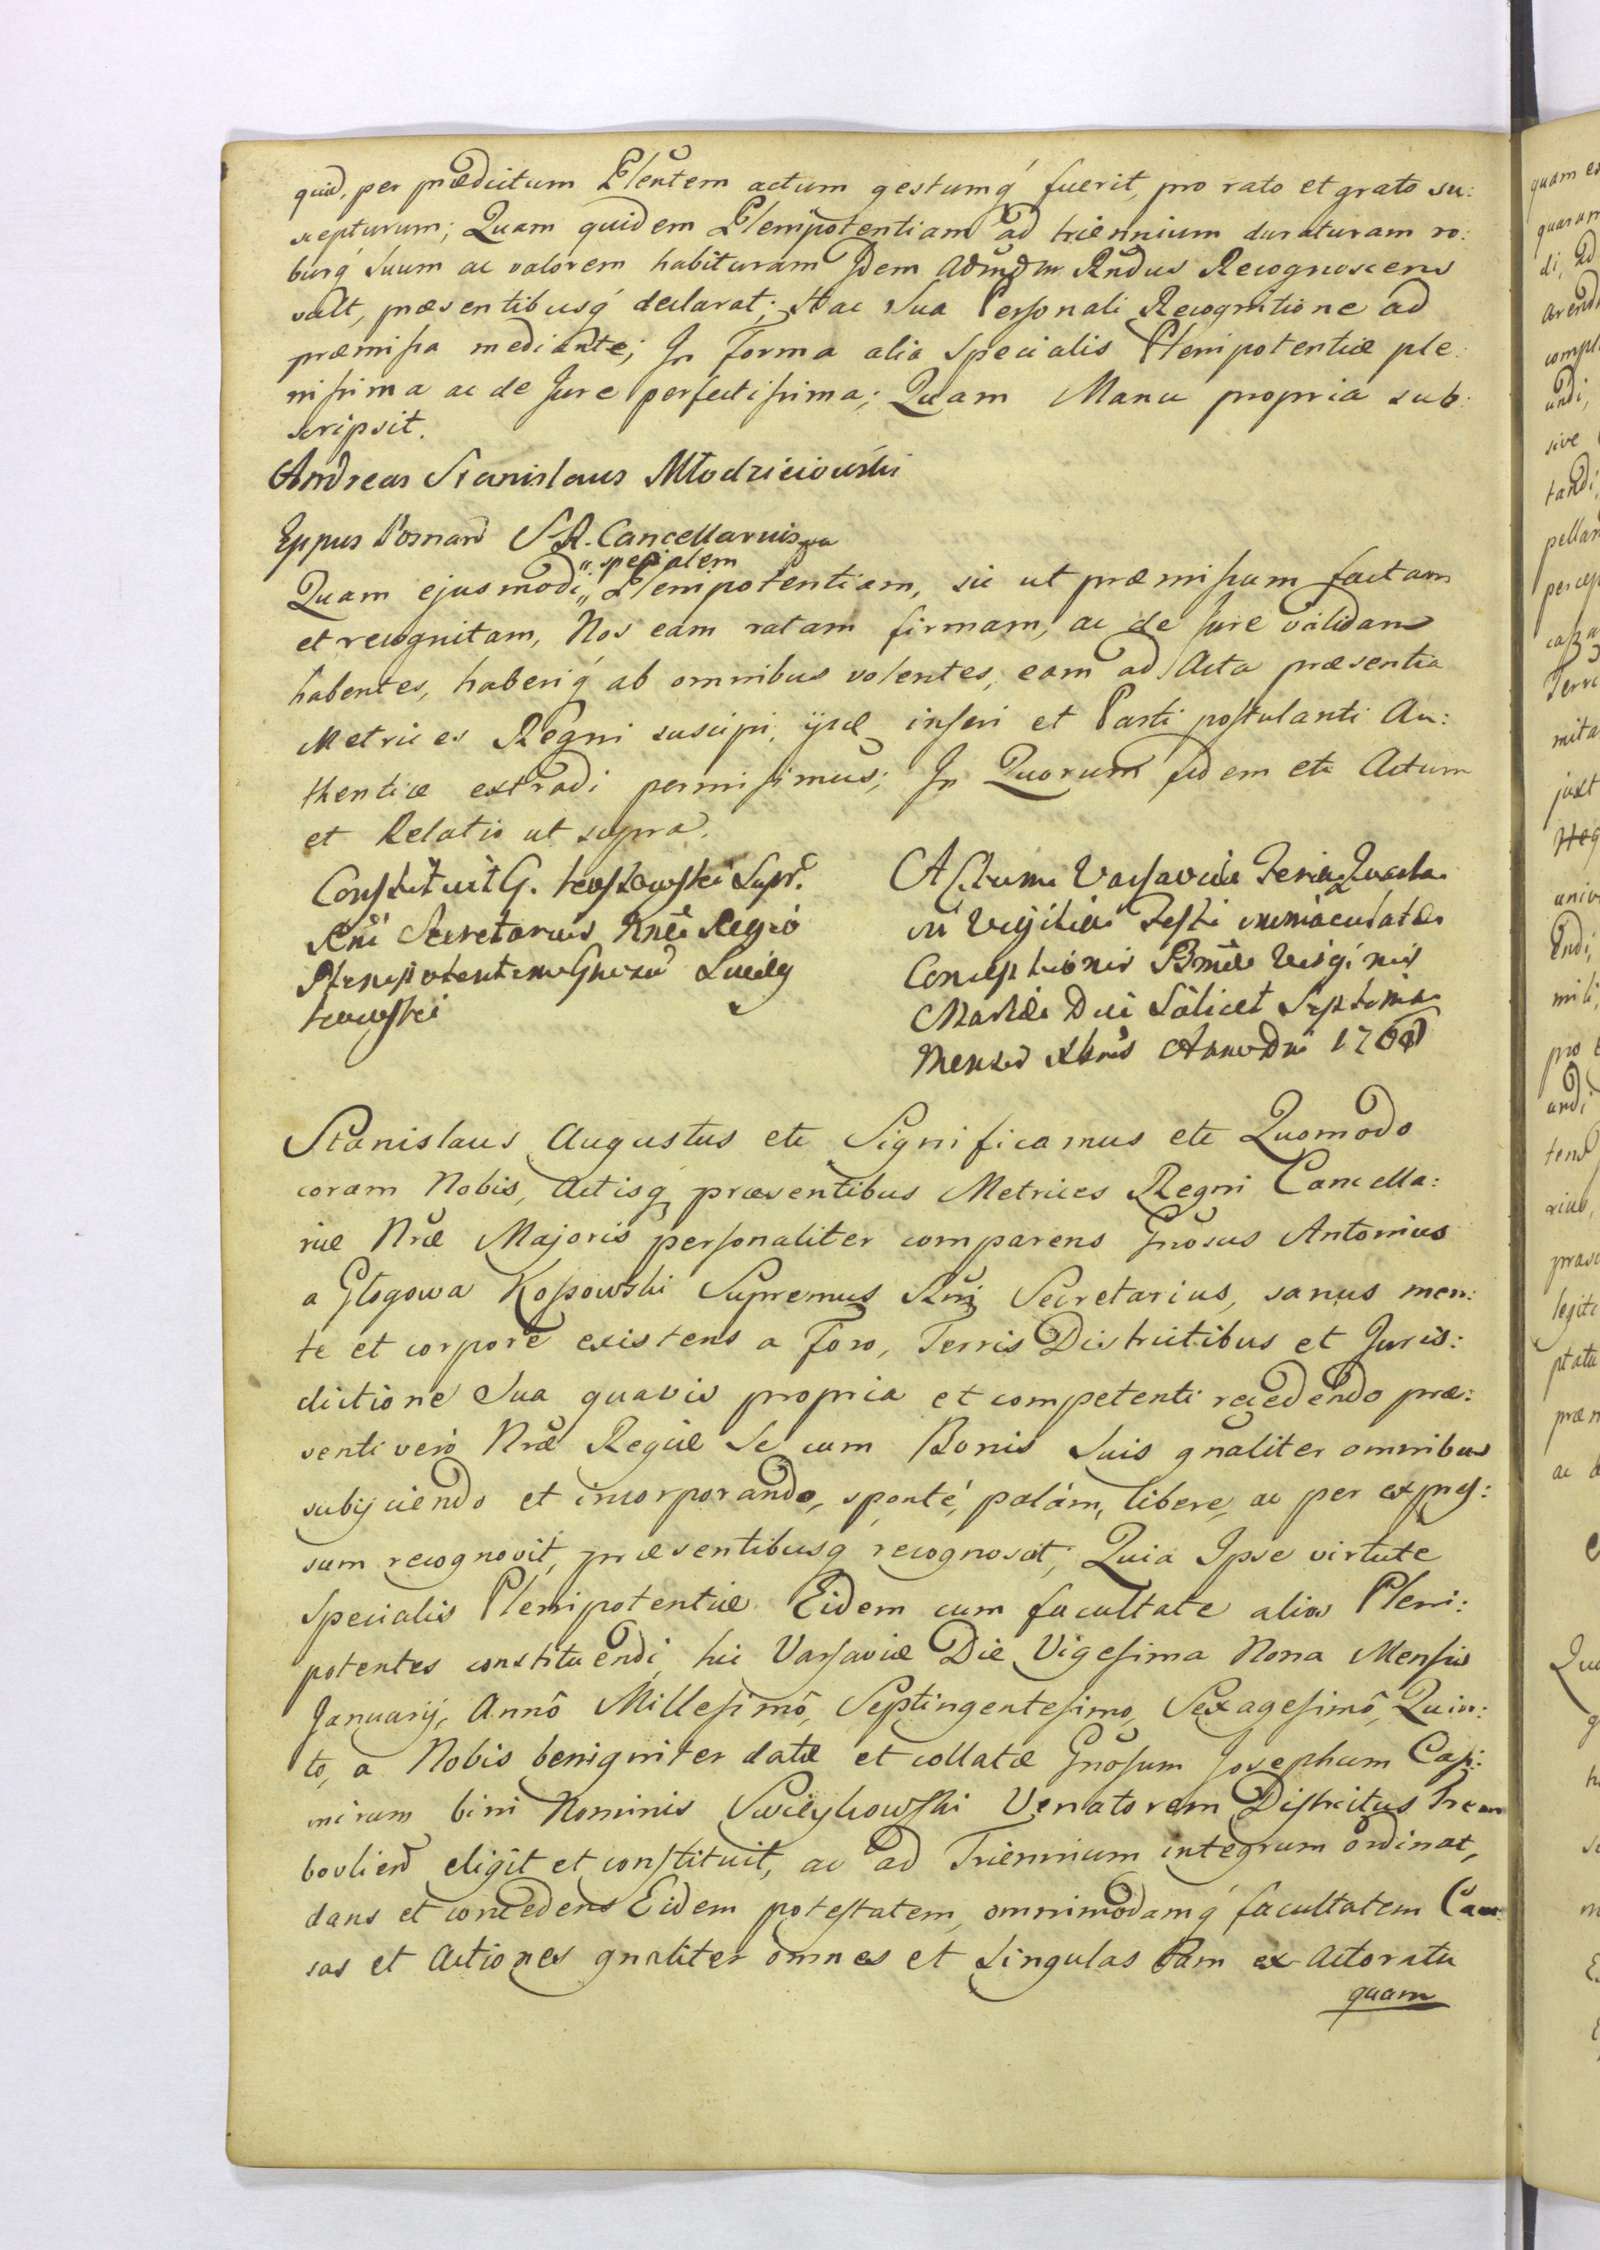 quid, per prædictum Plentem actum gestumq́ fuerit, pro rato et grato su:
scepturum; Quam quidem Plenipotentiam ad triennium duraturam ro:
burq́ Suum ac valorem habituram Idem Adm̃dm Rñdus Recognoscens
vult, præsentibusq́ declarat; Hac Sua Personali Recognitione ad
præmissa mediante; In Forma alia Specialis Plenipotentiæ ple:
nissima ac de Jure perfectissima; Quam Manu propria sub:
scripsit.
Andreas Stanislaus Młodzieiowski
Eppus Posnan S.R. Cancellarius
„specialem
Quam ejusmodi „ Plenipotentiam, sic ut præmissum factam
et recognitam, Nos eam ratam firmam, ac de Jure validam
habentes, haberiq́ ab omnibus volentes, eam ad Acta præsentia
Metrices Regni suscipi, ijsq inseri et Parti postulanti Au:
thenticæ extradi permisimus; In Quorum fidem etc Actum
et Relatio ut supra.
Constituit G. Kossowski Supr.
Rñi Secretarius Regio
Plenipotentem Gnosu Swiey
kowski
Actum Varsaviæ Feria Quarta
in Vigilia Festi immaculatæ
Conceptionis Bmæ Virginis
Mariæ Die Scilicet Septima
Mensis Xbris Anno Dni 176
Stanislaus Augustus etc Significamus etc Quomodo
coram Nobis, Actisq præsentibus Metrices Regni Cancella:
riæ Nræ Majoris personaliter comparens Gñosus Antonius
a Głogowa Kossowski Supremus Rñi Secretarius, sanus men:
te et corpore existens a Foro, Terris Districtibus et Juris:
dictione Sua quavis propria et competenti recedendo præ:
senti veró Nræ Regiæ Se cum Bonis Suis gnãliter omnibus
subijciendo et incorporando, sponté, palám, libere, ac per expres:
sum recognovit, præsentibusq recognoscit; Quia Ipse virtute
Specialis Plenipotentiæ Eidem cum facultate alios Pleni:
potentes constituendi, hic Varsaviæ Die Vigesima Nona Mensis
Januarij, Annô Millesimô, Septingentesimo, Sexagesimô, Quin:
to, a Nobis benigniter datæ et collatæ Gñosum Josephum Casi:
mirum bini Nominis Swieykowski Venatorem Districtus Trem
bovlien eligit et constituit, ac ad Triennium integrum ordinat,
dans et concedens Eidem potestatem, omnimodamq́ facultatem Cau:
sas et Actiones gnãliter omnes et Singulas tam ex Actoratu
quam